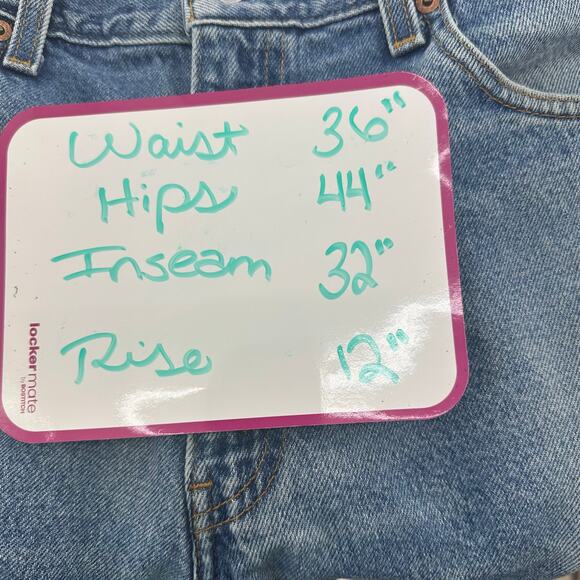 Waist 36"
Hips 44"
Inseam 32"
Rise 12"
lockermate
by BOSTITCH